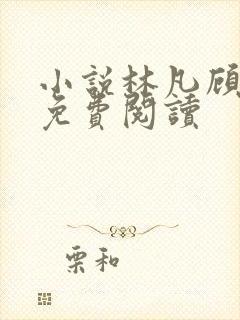 小說林凡顾
免費閱讀
栗和